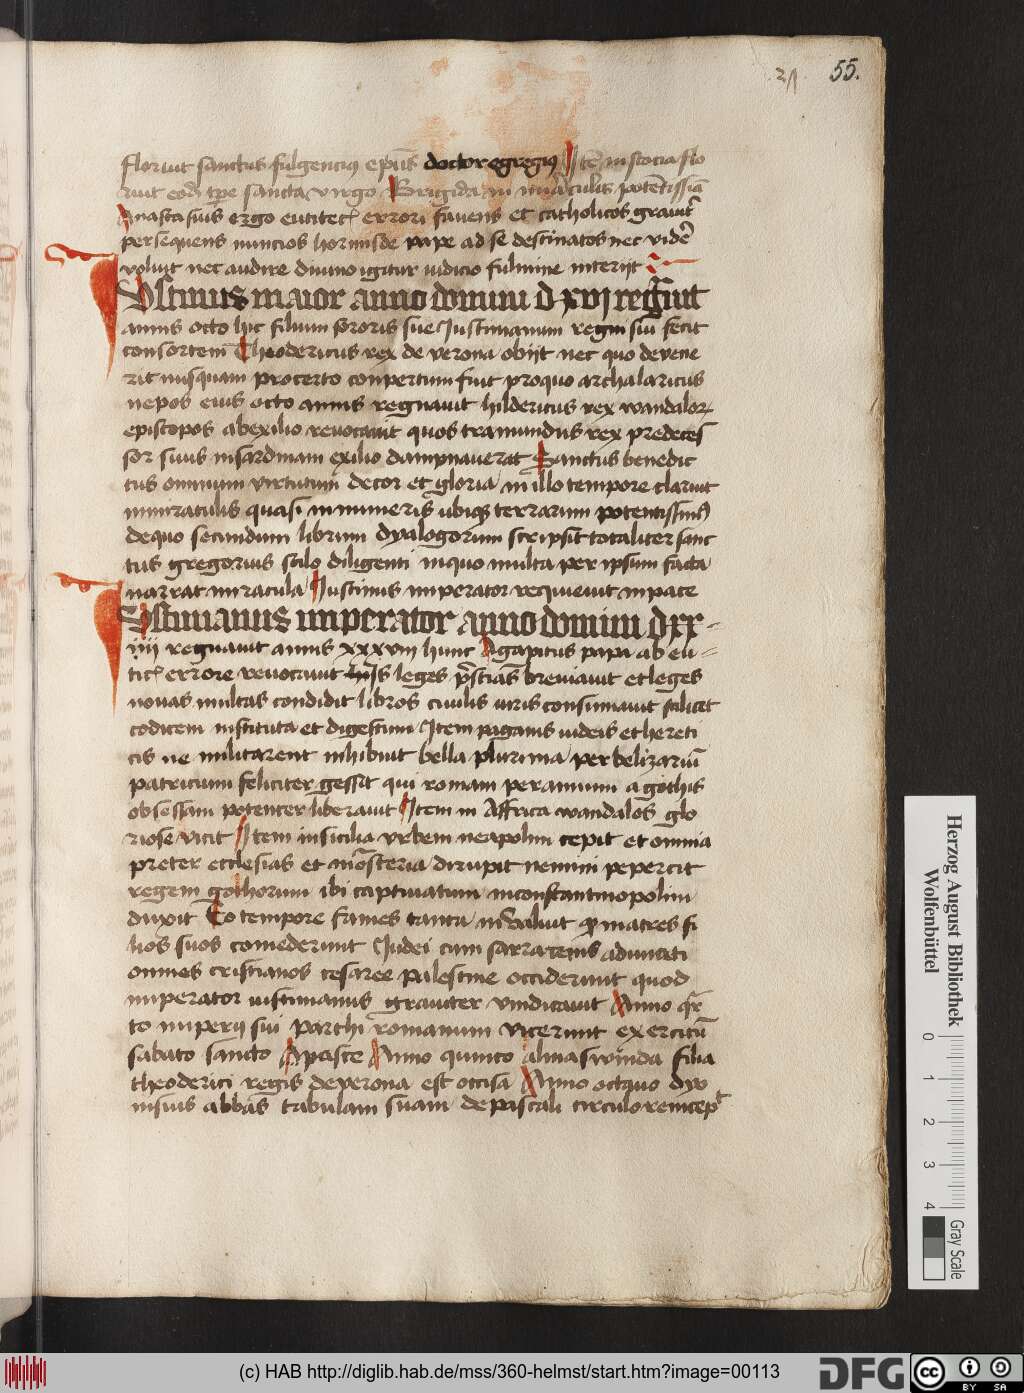 55.
floruit sanctus fulgencius ep̄us doctor egregius Itē in scocia flo
ruit eod tp̄e sancta virgo Brigida in miraculis potētissīa
Anastasius ergo euticet errori fauens et catholicos grauit̄
persequens nuncios hormisde pape ad se destinatos nec vidē
voluit nec audire diuino igitur iudicio fulmine interijt
Iustinus maior anno domini d xvj regnauit
annis octo hic filium sororis sue Iustinianum regni sui fecit
consortem Theodericus rex de verona obijt nec quo deuene
rit nusquam procerto conpertum fuit proquo archalaricus
nepos eius octo annis regnauit hildericus rex wandalor
episcopos abexilio reuocauit quos tramundus rex predeces
sor suus insardiniam exilio dampnauerat Sanctus benedic
tus omnium virtutum decor et gloria in illo tempore claruit
in miraculis quasi innumeris ubiqꝫ terrarum potentissimꝰ
dequo secundum librum dyalogorum scripsit totaliter sanc
tus gregorius stilo diligenti inquo multa per ipsum facta
narrat miracula Iustinus imperator requieuit in pace
Iustinianus imperator anno domini dxx-
iiij regnauit annis xxxviii hunc Agapitus papa ab eu-
tic errore reuocauit leges p̄stias breuiauit et leges
nouas multas condidit libros ciuilis iuris consumauit scilicet
codicem instituta et digestum Item paganis iudeis et hereti
cis ne militarent inhibuit bella plurima per belizariū
patricium feliciter gessit qui romam per annum a gothis
obsessam potenter liberauit Item in Affrica wandalos glo
riose vicit Item in sicilia vrbem neapolim cepit et omnia
preter ecclesias et mōsteria dirupit nemini pepercit
regem gothorum ibi captiuatum inconstantinopolim
duxit Eo tempore fames tanta inualuit qꝫ matres fi
lios suos comederunt Iudei cum sarracenis adunati
omnes cristianos cesaree palestine occiderunt quod
imperator iustinianus grauiter vindicauit Anno qr̄
to imperij sui parthi romanum vicerunt exercitū
sabato sancto Apasce Anno quinto almaswinda filia
theoderici regis de verona est occisa Anno octauo dyo
nisius abbas tabulam suam de pascali circulo remcep
Herzog August Bibliothek
Wolfenbüttel
0 1 2 3 4
Gray Scale
(c) HAB http://diglib.hab.de/mss/360-helmst/start.htm?image=00113
DFG
cc
BY SA